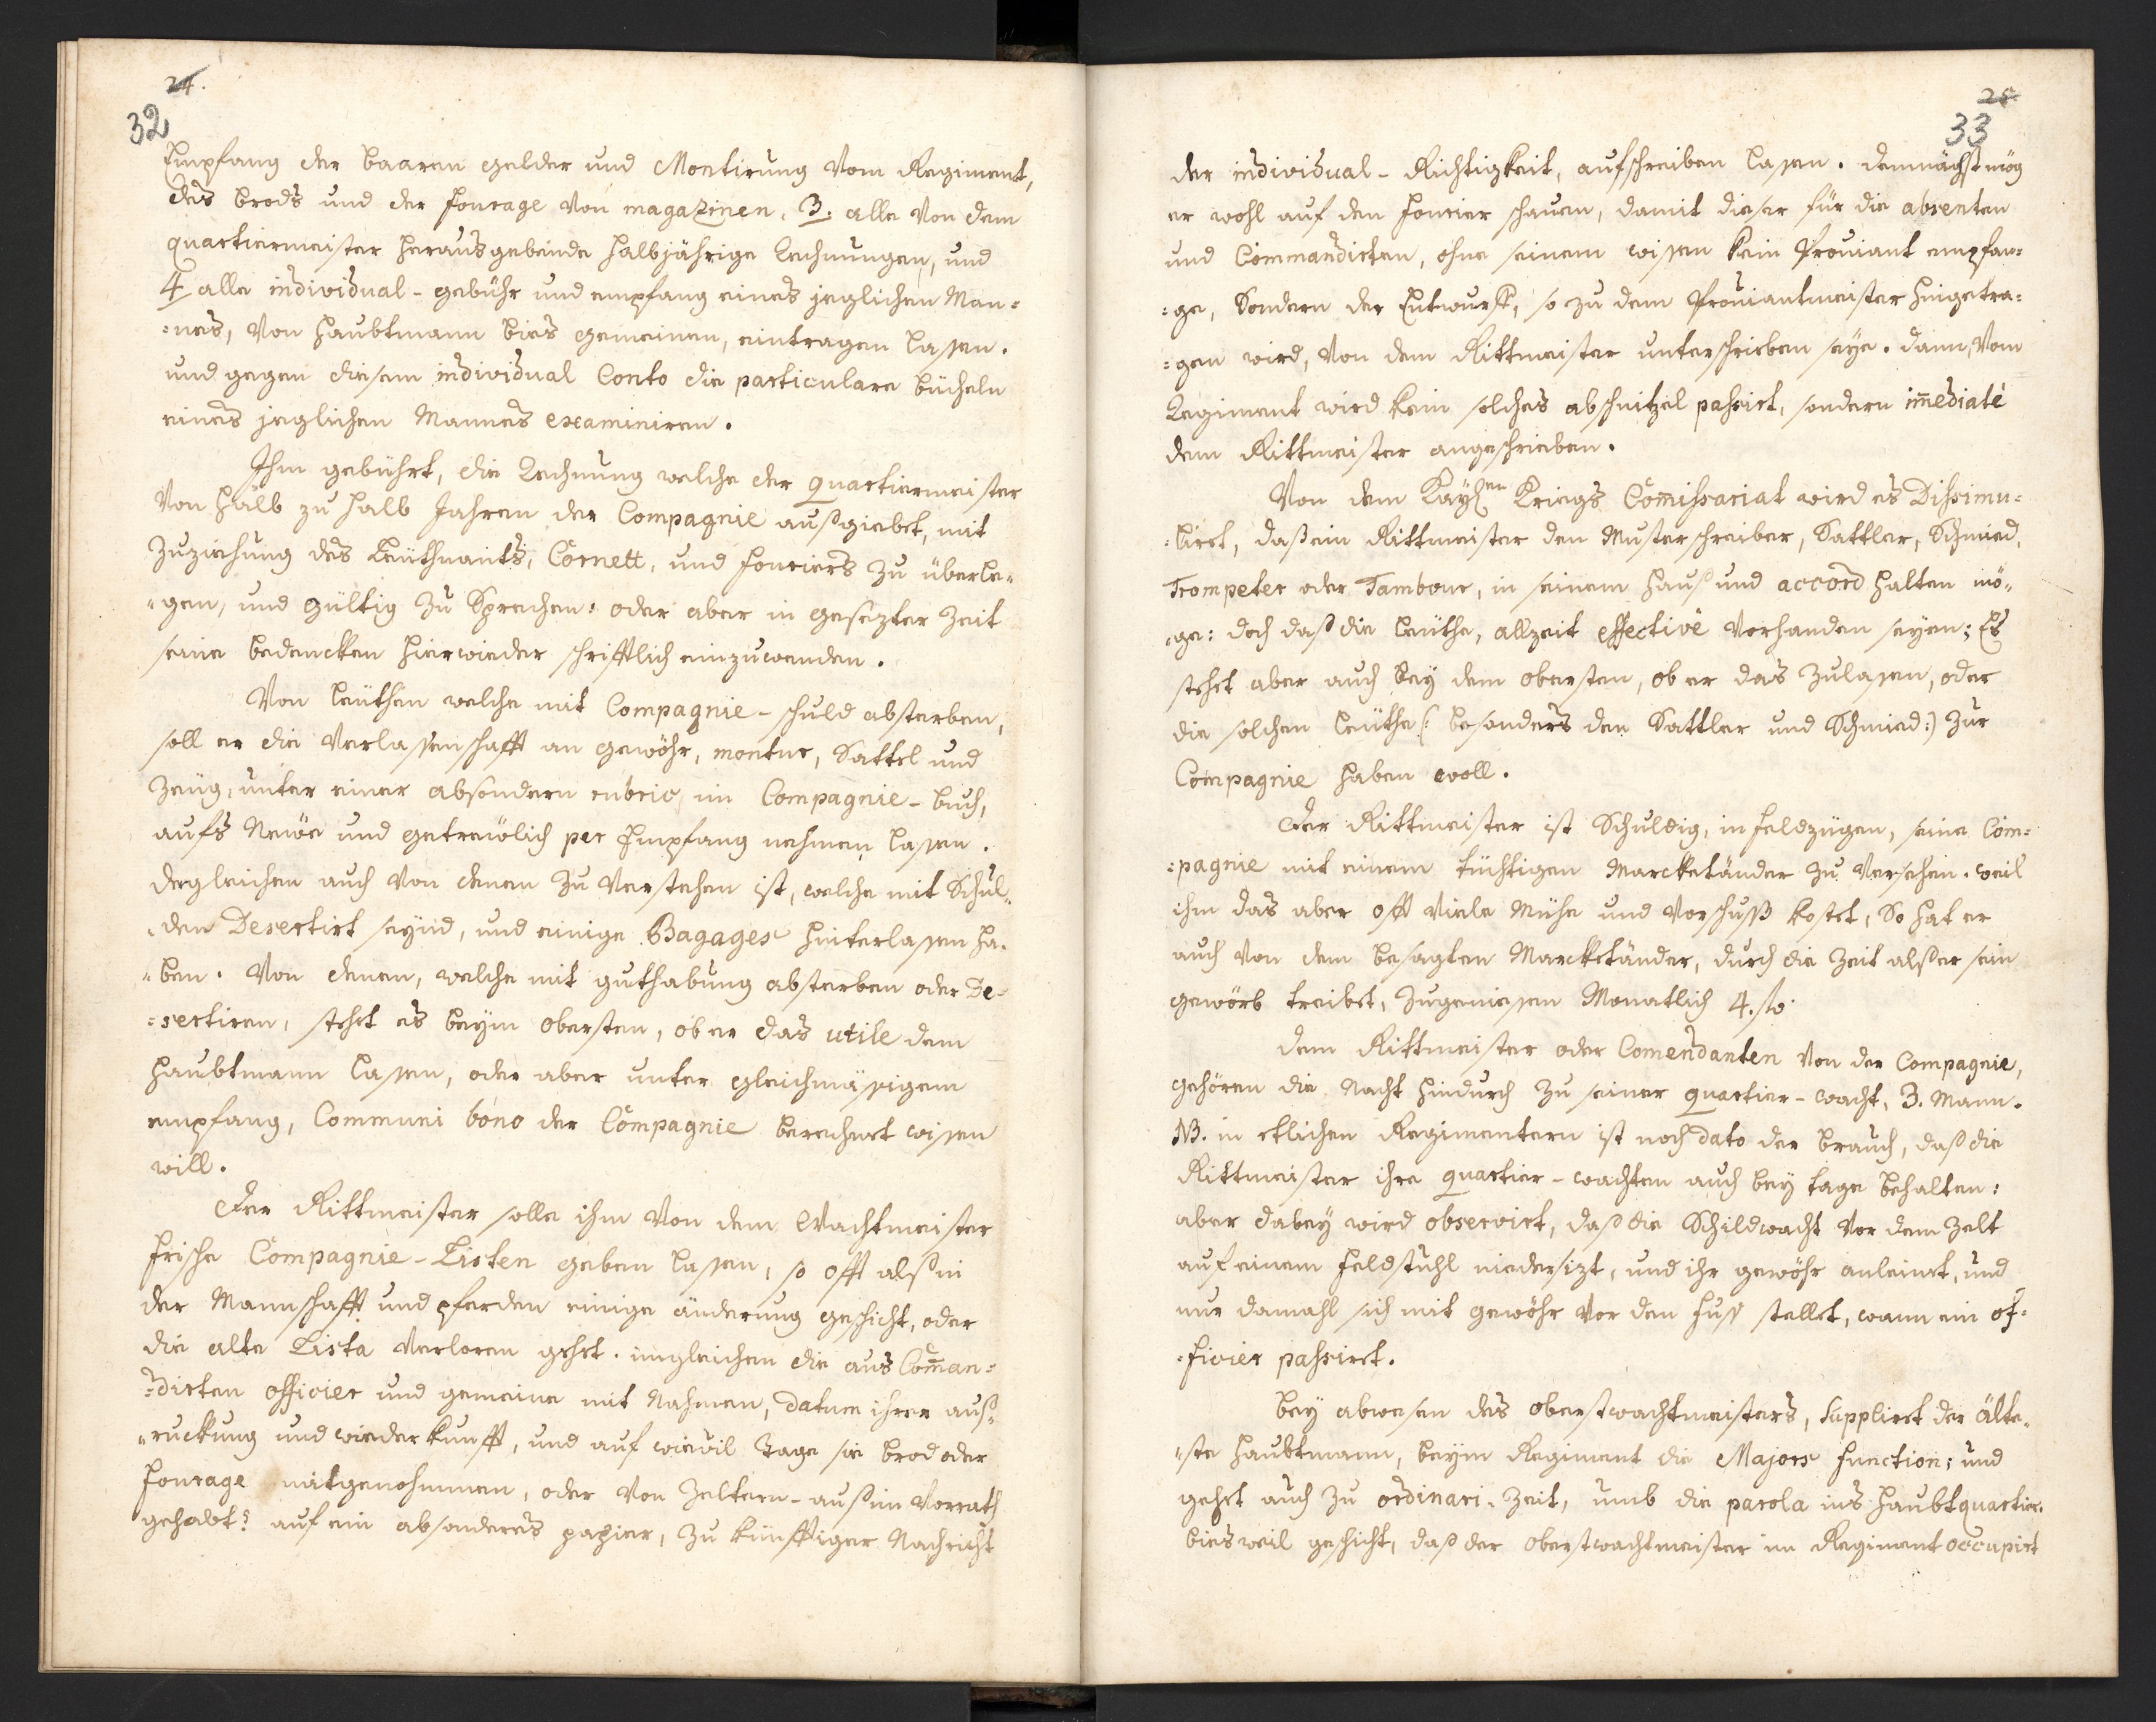 24.
32
Empfang der baaren gelder und Montirung Vom Regiment,
des brods und der fourage Von magazinen. 3. alle Von dem
quartiermeister herausgebende halbjährige Rechnungen, und
4 alle individual-gebühr und empfang eines jeglichen Man=
=nes, Von Haubtmann bies gemeinen, eintragen lassen.
und gegen diesem individual Conto die particulare bücheln
eines jeglichen Mannes examiniren.
Ihm gebührt, die Rechnung welche der quartiermeister
Von halb zu halb Jahren der Compagnie außgiebet, mit
Zuziehung des Leüthnants, Cornett, und fouriers zu überle=
=gen, und gültig zu Sprechen: oder aber in gesezter Zeit
seine bedencken hierwieder schrifftlich einzuwenden.
Von leüthen welche mit Compagnie-schuld absterben,
soll er die Verlassenschafft an gewöhr, montur, Sattel und
Zeüg, unter einer absondern rubric, im Compagnie-buch,
aufs Neüe und getreülich per Empfang nehmen lassen.
dergleichen auch Von denen zu Verstehen ist, welche mit Schul=
=den Desertirt seynd, und einige Bagages hinterlassen ha=
=ben. Von denen, welche mit guthabung absterben oder De=
=sertiren, stehet es beym obersten, ob er das utile dem
Haubtmann lassen, oder aber unter gleichmässigem
empfang, Communi bono der Compagnie berechnet wissen
will.
Der Rittmeister solle ihm Von dem Wachtmeister
frische Compagnie-Listen geben lassen, so offt alß in
der Mannschafft und pferden einige änderung geschicht, oder
die alte Lista Verloren gehet. imgleichen die aus Com̄an=
=dirten officier und gemeine mit Nahmen, Datum ihrer auß=
=ruckung und wiederkunfft, und auf wievil Tage sie brod oder
fourage mitgenohmmen, oder Von Zeltern-auß im Vorrath
gehabt? auf ein absonderes papier, zu künfftiger Nachricht
25
33
der individual-Richtigkeit, aufschreiben lassen. demnächst mög
er wohl auf den fourier schauen, damit dieser für die absenten
und Commandirten, ohne seinem wissen kein Proviant empfan=
=ge, Sondern der Entwurff, so zu dem Proviantmeister hingetra=
=gen wird, Von dem Rittmeister unterschrieben seye. dann Vom
Regiment wird kein solches abschnitzel passirt, sondern im̄ediatè
dem Rittmeister angeschrieben.
Von dem Kaysen Kriegs Com̄issariat wird es Dissimu=
=liret, daß ein Rittmeister den Musterschreiber, Sattler, Schmied,
Trompeter oder Tambour, in seinem hauß und accord halten mö=
=ge: doch daß die leüthe, allzeit effectivè Vorhanden seyen; Es
stehet aber auch bey dem obersten, ob er das zulassen, oder
die solchen leüthe (: besonders den Sattler und Schmied:) zur
Compagnie haben woll.
Der Rittmeister ist Schuldig, in feldzügen, seine Com=
=pagnie mit einem tüchtigen Marcketänder zu Versehen. weil
ihm das aber offt Viele Mühe und Vorschuß kostet, So hat er
auch Von dem besagten Marcketänder, durch die Zeit alß er sein
gewörb treibet, zugeniessen Monatlich 4. fl.
dem Rittmeister oder Comendanten Von der Compagnie,
gehören die Nacht hindurch zu seiner quartier-wacht, 3. Mann.
NB. in etlichen Regimentern ist noch dato der brauch, daß die
Rittmeister ihre quartier-wachten auch bey tage behalten:
aber dabey wird observirt, daß die Schildwacht Vor dem Zelt
auf einem feldstuhl niedersizt, und ihr gewöhr anleinet, und
nur damahl sich mit gewöhr Vor den fuß stellet, wann ein of=
=ficier passiret.
Bey abwesen des oberstwachtmeisters, Suppliret der älte=
=ste Haubtmann, beym Regiment die Majors function; und
gehet auch zu ordinari-Zeit, umb die parola ins Haubtquartier.
biesweil geschicht, daß der oberstwachtmeister im Regiment occupirt